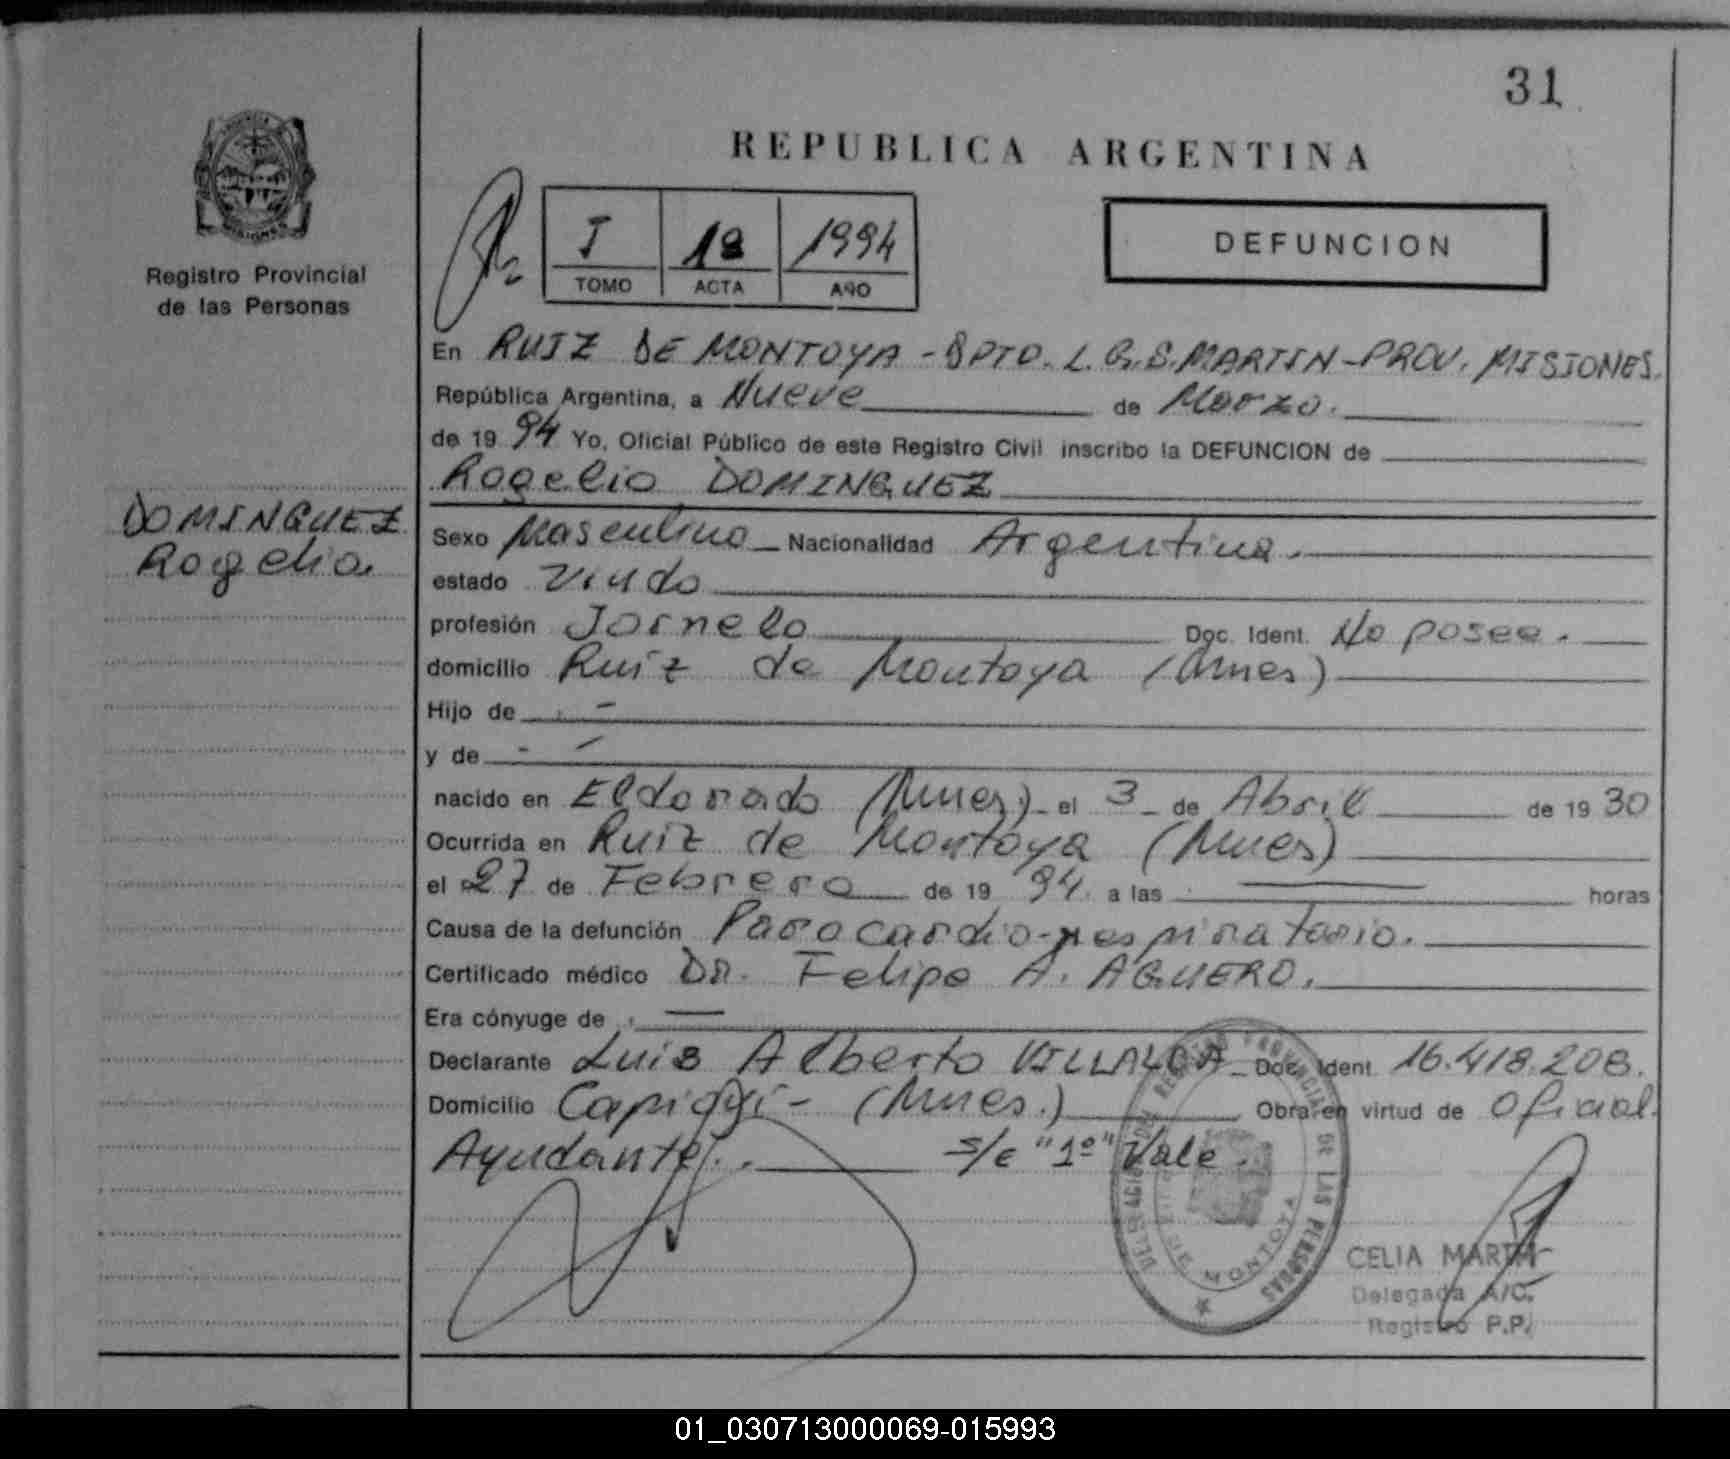 31
REPUBLICA ARGENTINA
I 18 1994
TOMO ACTA AÑO
DEFUNCION
Registro Provincial
de las Personas
En RUIZ DE MONTOYA - DPTO. L.G.S.MARTIN - PROV. MISIONES.
República Argentina, a Nueve de Marzo.
de 19 94 Yo, Oficial Público de este Registro Civil inscribo la DEFUNCION de
Rogelio DOMINGUEZ
DOMINGUEZ
Rogelio.
Sexo Masculino Nacionalidad Argentina.
estado Viudo
profesión Jornelo Doc. Ident. No posee.
domicilio Ruiz de Montoya (Mnes)
Hijo de -
y de - -
nacido en Eldorado (Mnes) - el 3 - de Abril de 19 30
Ocurrida en Ruiz de Montoya (Mnes)
el 27 de Febrero de 19 94. a las — horas
Causa de la defunción Paro cardio-respiratorio.
Certificado médico Dr. Felipe A. AGUERO.
Era cónyuge de —
Declarante Luis Alberto VILLALBA - Doc. Ident. 16.418.208.
Domicilio Capioví - (Mnes.) Obra en virtud de Oficial.
Ayudante. s/e "1º" Vale.
REGISTRO PROVINCIAL DE LAS PERSONAS
MONTOYA
CELIA MARTH
Delegada A/C.
Registro P.P.
01_030713000069-015993